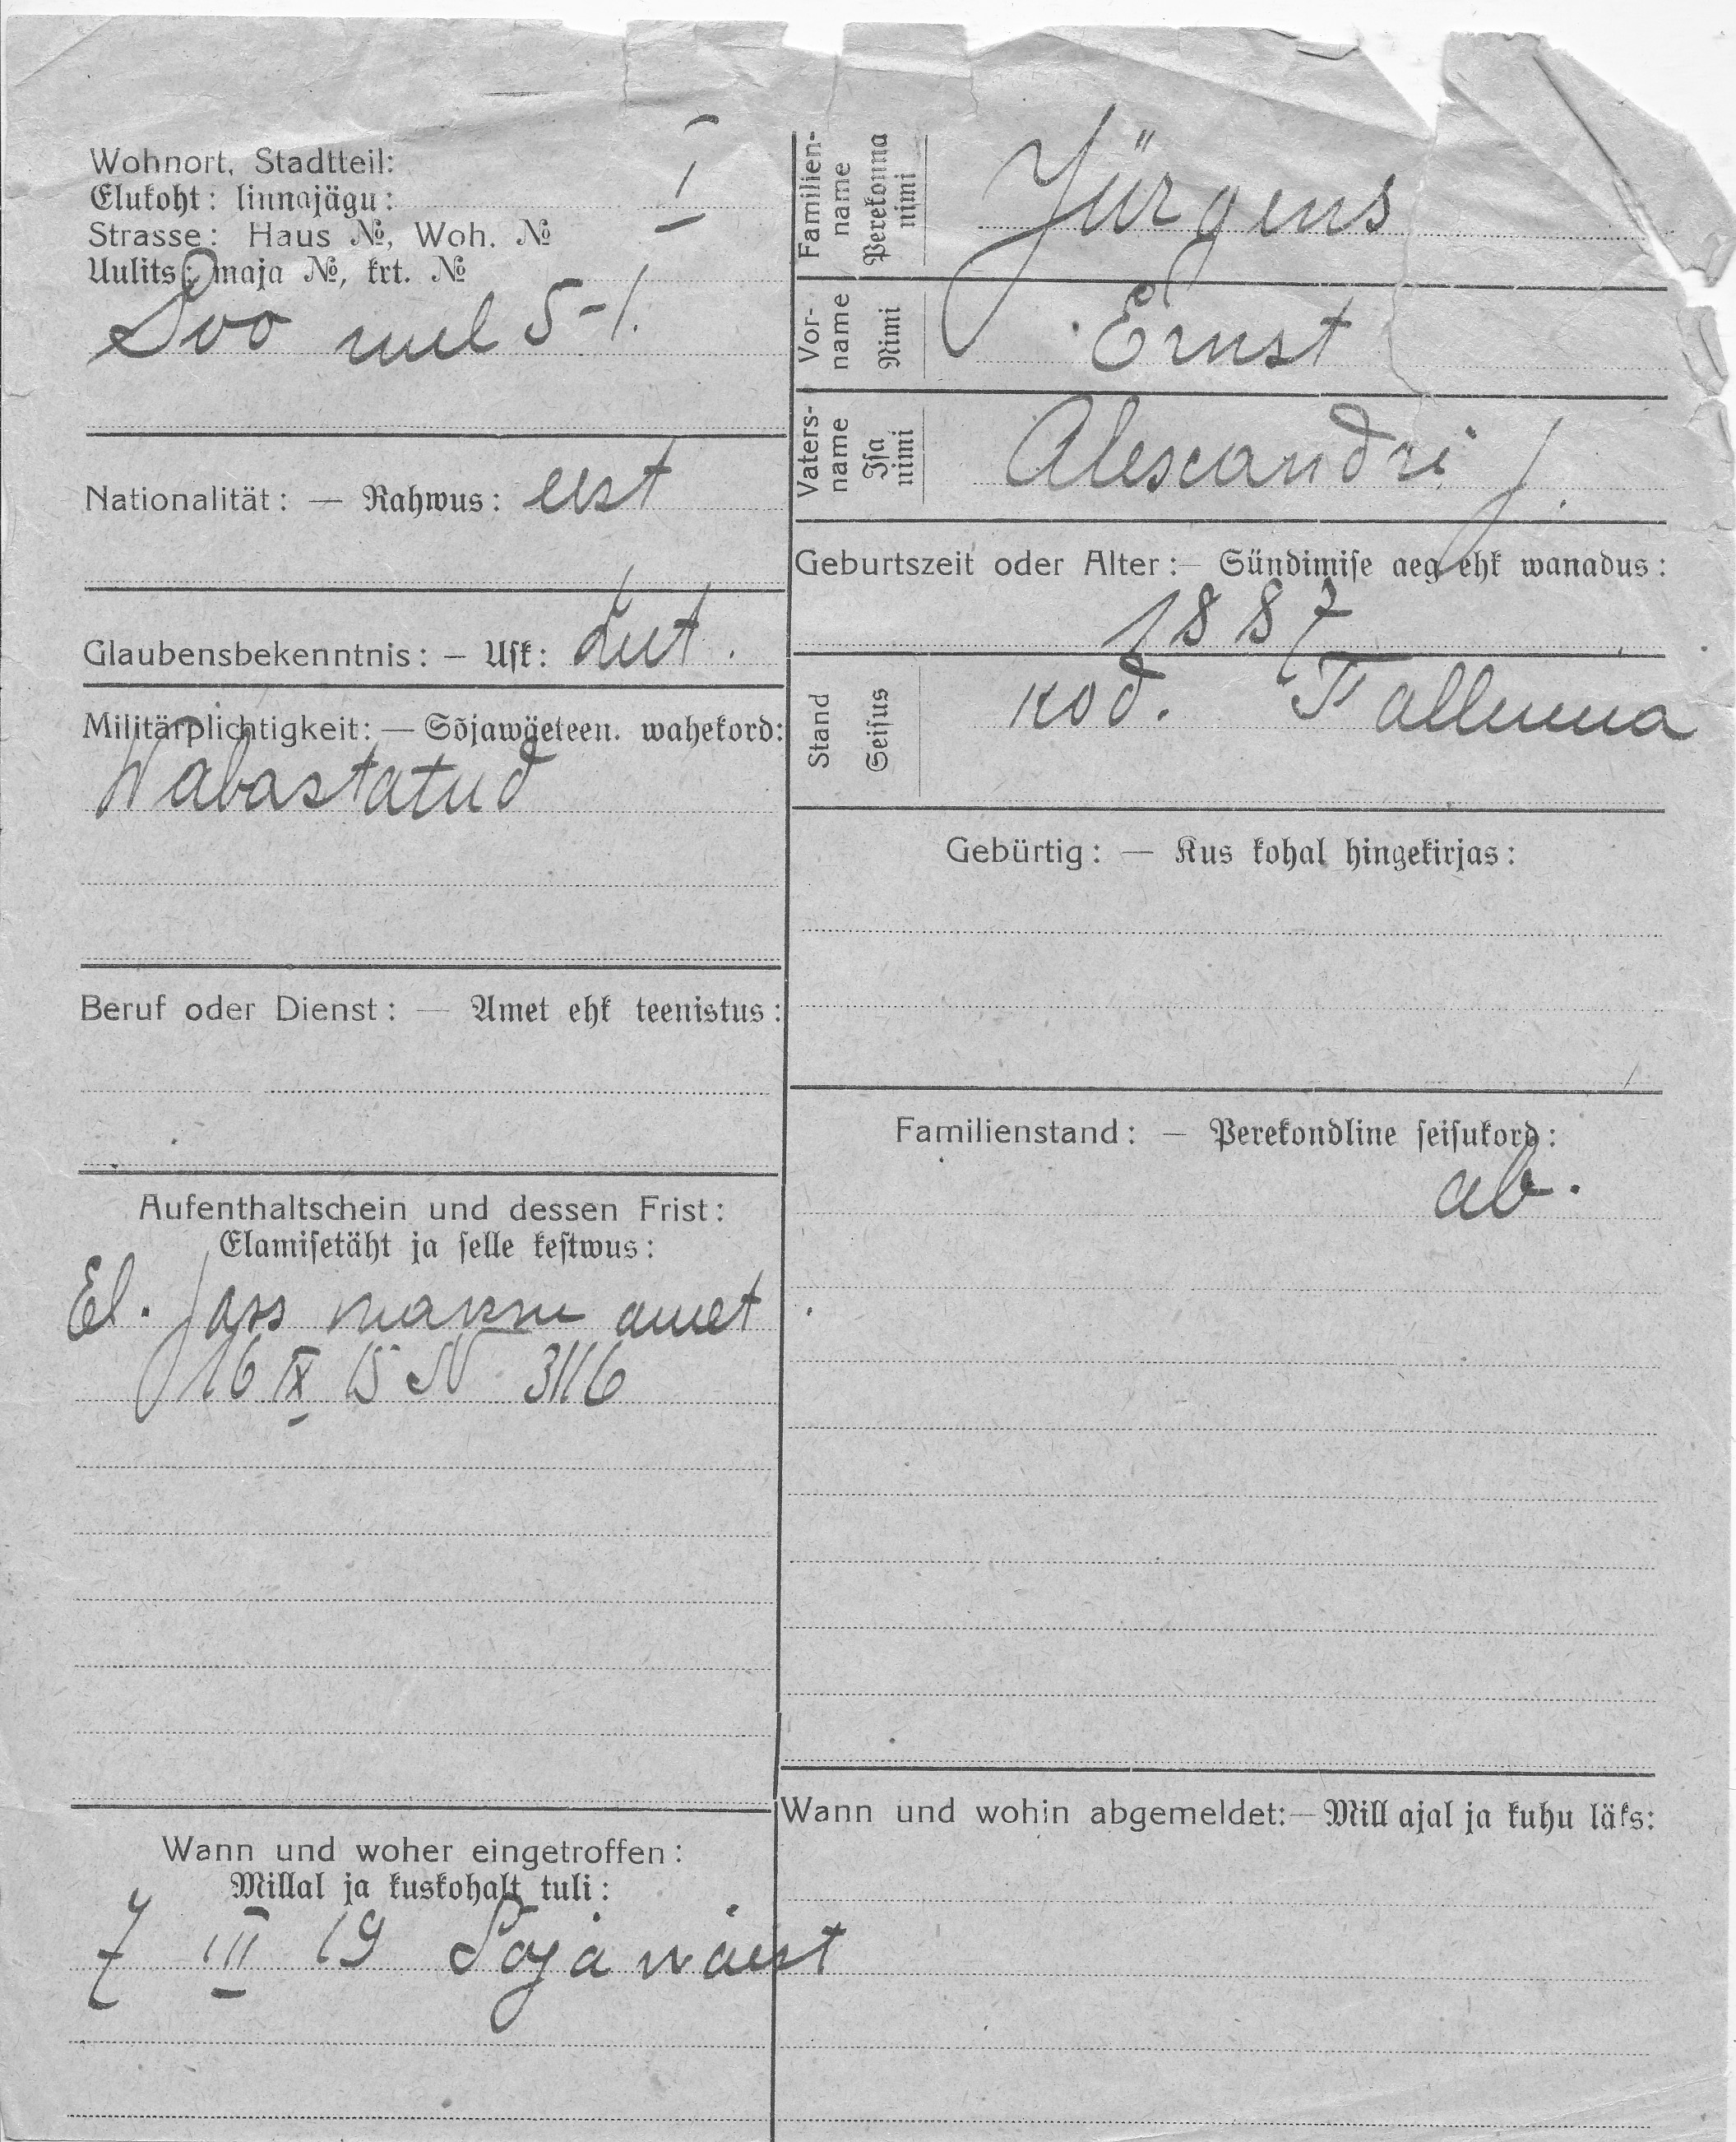 Wohnort, Stadtteil:
Elukoht: linnajägu: I
Strasse: Haus №, Woh. №
Uulits: maja №, krt. №
Soo uul 5-1.
Nationalität: — Rahwus: eest
Glaubensbekenntnis: — Usk: Lut.
Militärplichtigkeit: — Sõjawäeteen. wahekord:
Wabastatud
Beruf oder Dienst: — Amet ehk teenistus:
Aufenthaltschein und dessen Frist:
Elamisetäht ja selle kestwus:
El. pass maksu amet
16 IX 15 N 3116
Wann und woher eingetroffen:
Millal ja kuskohalt tuli:
7 III 19 Sojawäest
Familien-
name
Perekonna
nimi
Jürgens
Vor-
name
Nimi
Ernst
Vaters-
name
Isa
nimi
Alexandri p.
Geburtszeit oder Alter: — Sündimise aeg ehk wanadus:
1887
Stand
Seisus
kod. Tallinna
Gebürtig: — Kus kohal hingekirjas:
Familienstand: — Perekondline seisukord:
ab.
Wann und wohin abgemeldet: — Mill ajal ja kuhu läks: